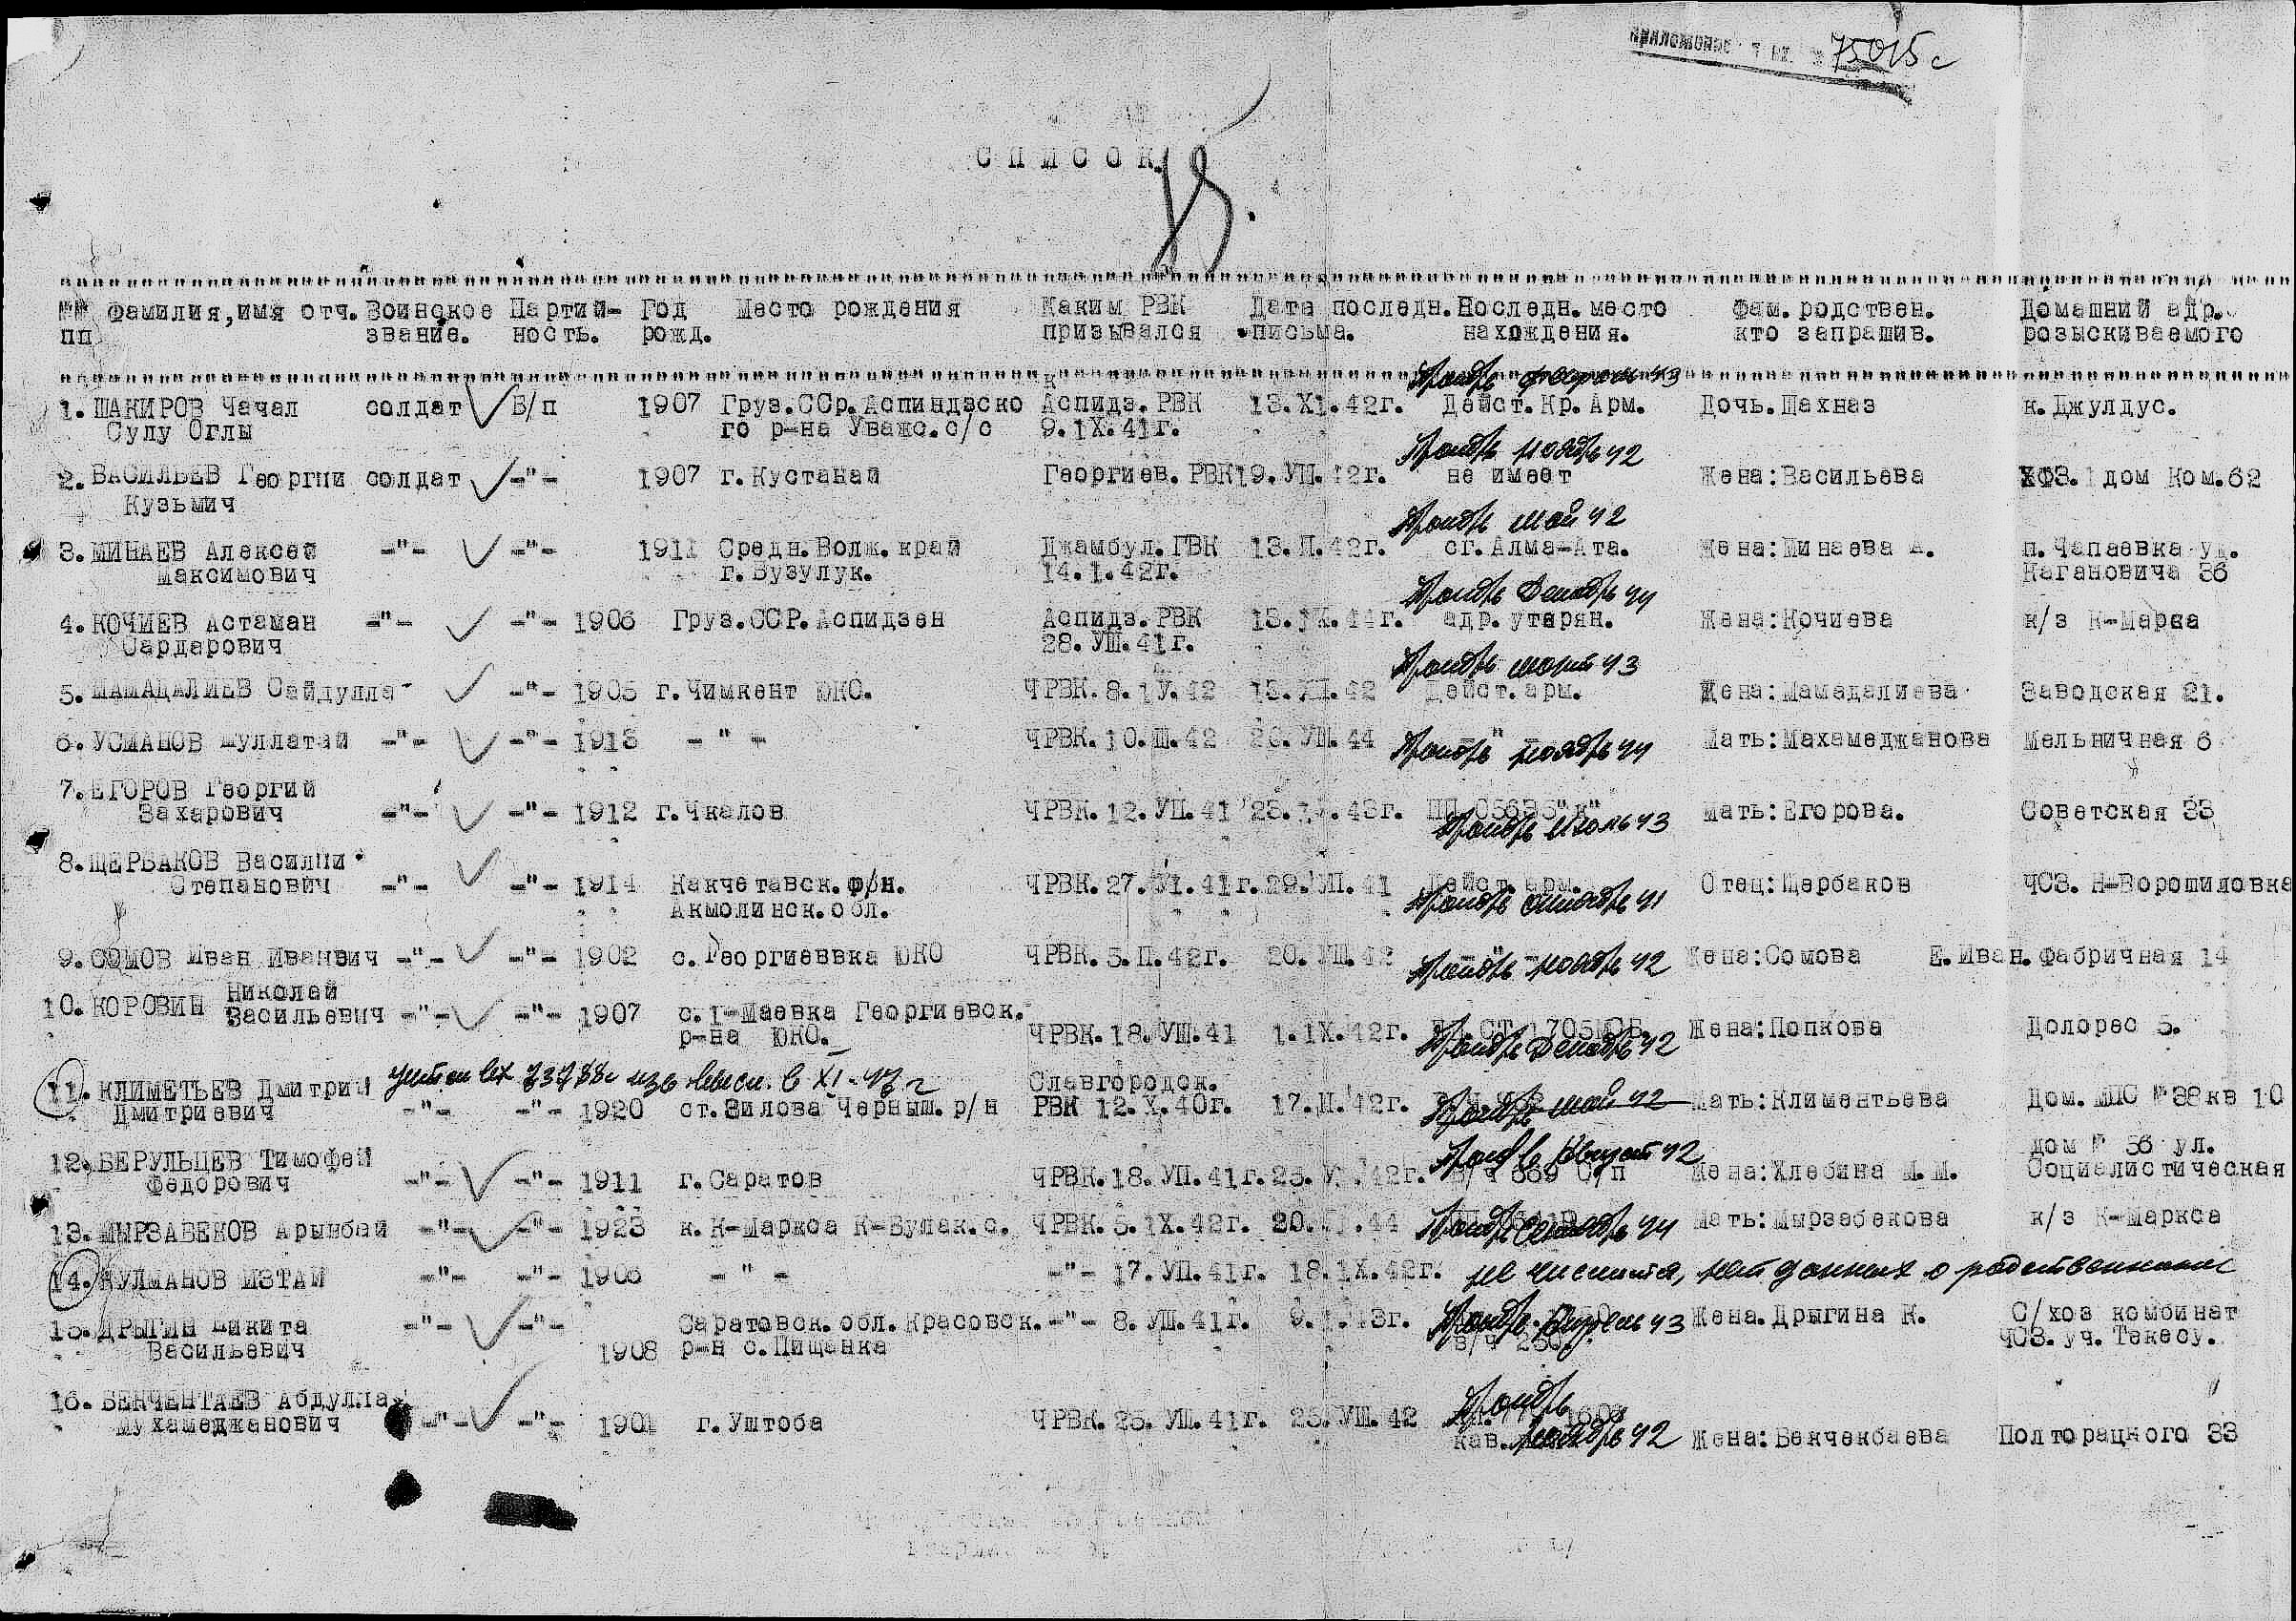 75015с
СПИСОК
№№ Фамилия,имя отч. Воинское Партий- Год Место рождения Каким РВК Дата последн. Последн. место Фам. родствен. Домашний адр.
пп звание. ность. рожд. призывался письма. нахождения. кто запрашив. розыскиваемого
пропр февраль 43
1. ШАКИРОВ Чачал солдат Б/п 1907 Груз.ССр.Аспиндзско Аспидз. РВК 13.XI.42г. Дейст. Кр. Арм. Дочь.Шахназ к. Джулдус.
Сулу Оглы го р-на Уважс. с/с 9.1X.41г.
ноябрь 42
2. ВАСИЛЬЕВ Георгии солдат -"- 1907 г. Кустанай Георгиев. РВК 19. УШ. 42г. не имеет Жена:Васильева ХФЗ. 1 дом Ком.62
Кузьмич
май 42
3. МИНАЕВ Алексей -"- -"- 1911 Средн. Волж. край Джамбул. ГВК 13.П.42г. ст. Алма-Ата. Жена:Минаева А. п. Чапаевка ул.
Максимович г. Бузулук. 14.1.42г. Кагановича 36
декабрь 44
4. КОЧИЕВ Астаман -"- -"- 1906 Груз.ССР.Аспидзен Аспидз. РВК 13.1X.44г. адр. утерян. Жена:Кочиева к/з К-Маркса
Сардарович 28. УШ. 41г.
март 43
5. МАМАДАЛИЕВ Сайдулла -"- 1905 г. Чимкент ЮКО. ЧРВК. 8.1У.42 Дейст. арм. Жена:Мамадалиева Заводская 21.
6. УСМАНОВ -"- -"- 1913 - " - ЧРВК. 10. Ш. 42 20. УШ. 44 ноябрь 44 Мать:Махамеджанова Мельничная 6
7. ЕГОРОВ Георгий
Захарович -"- -"- 1912 г. Чкалов ЧРВК. 12. УП. 41 43г. ПП. 05635"к" Мать:Егорова. Советская 33
июль 43
8. ЩЕРБАКОВ Василии
Степанович -"- -"- 1914 Какчетавск. р/н. ЧРВК. 27. У1. 41г. 29. УП. 41 Дейст. арм. Отец:Щербаков ЧСЗ. Н-Ворошиловка
Акмолинск. обл. октябрь 41
9. СОМОВ Иван Иванвич -"- -"- 1902 с. Георгиеввка ЮКО ЧРВК. 5. П. 42г. 20. УШ. 42 ноябрь 42 Жена:Сомова Е. Иван. Фабричная 14
Николай
10. КОРОВИН Васильевич -"- -"- 1907 с. 1-Маевка Георгиевск.
р-на ЮКО. ЧРВК. 18. УШ. 41 1. 1X. 42г. Жена:Попкова Долорес 5.
декабрь 42
11. КЛИМЕТЬЕВ Дмитрий Славгородск.
Дмитриевич -"- -"- 1920 ст. Зилова Черныш. р/н РВК 12. X. 40г. 17. П. 42г. май 42 Мать:Климентьева Дом. МПС № 38 кв 10
12. БЕРУЛЬЦЕВ Тимофей август 42 дом № 56 ул.
Федорович -"- -"- 1911 г. Саратов ЧРВК. 18. УП. 41г. В/ч 889 С/п Жена:Хлебина М. М. Социалистическая
13. МЫРЗАБЕКОВ Арынбай -"- -"- 1923 к. К-Маркса К-Булак. с. ЧРВК. 5. 1X. 42г. 44 Мать:Мырзабекова к/з К-Маркса
14. КУЛМАНОВ ИЗТАМ -"- -"- 1905 - " - -"- 17. УП. 41г. 18. 1X. 42г. не числится, нет данных о родственниках
15. ДРЫГИН Никита -"- -"- Саратовск. обл. Красовск. -"- 8. УШ. 41г. 9. 1. 43г. апрель 43 Жена. Дрыгина К. С/хоз комбинат
Васильевич 1908 р-н с. Пищанка ЧСЗ. уч. Текесу.
16. БЕКЧЕНТАЕВ Абдулла
Мухамеджанович -"- -"- 1901 г. Уштоба ЧРВК. 25. УШ. 41г. 25. УШ. 42
кав. 42 Жена:Бекченбаева Полторацкого 33